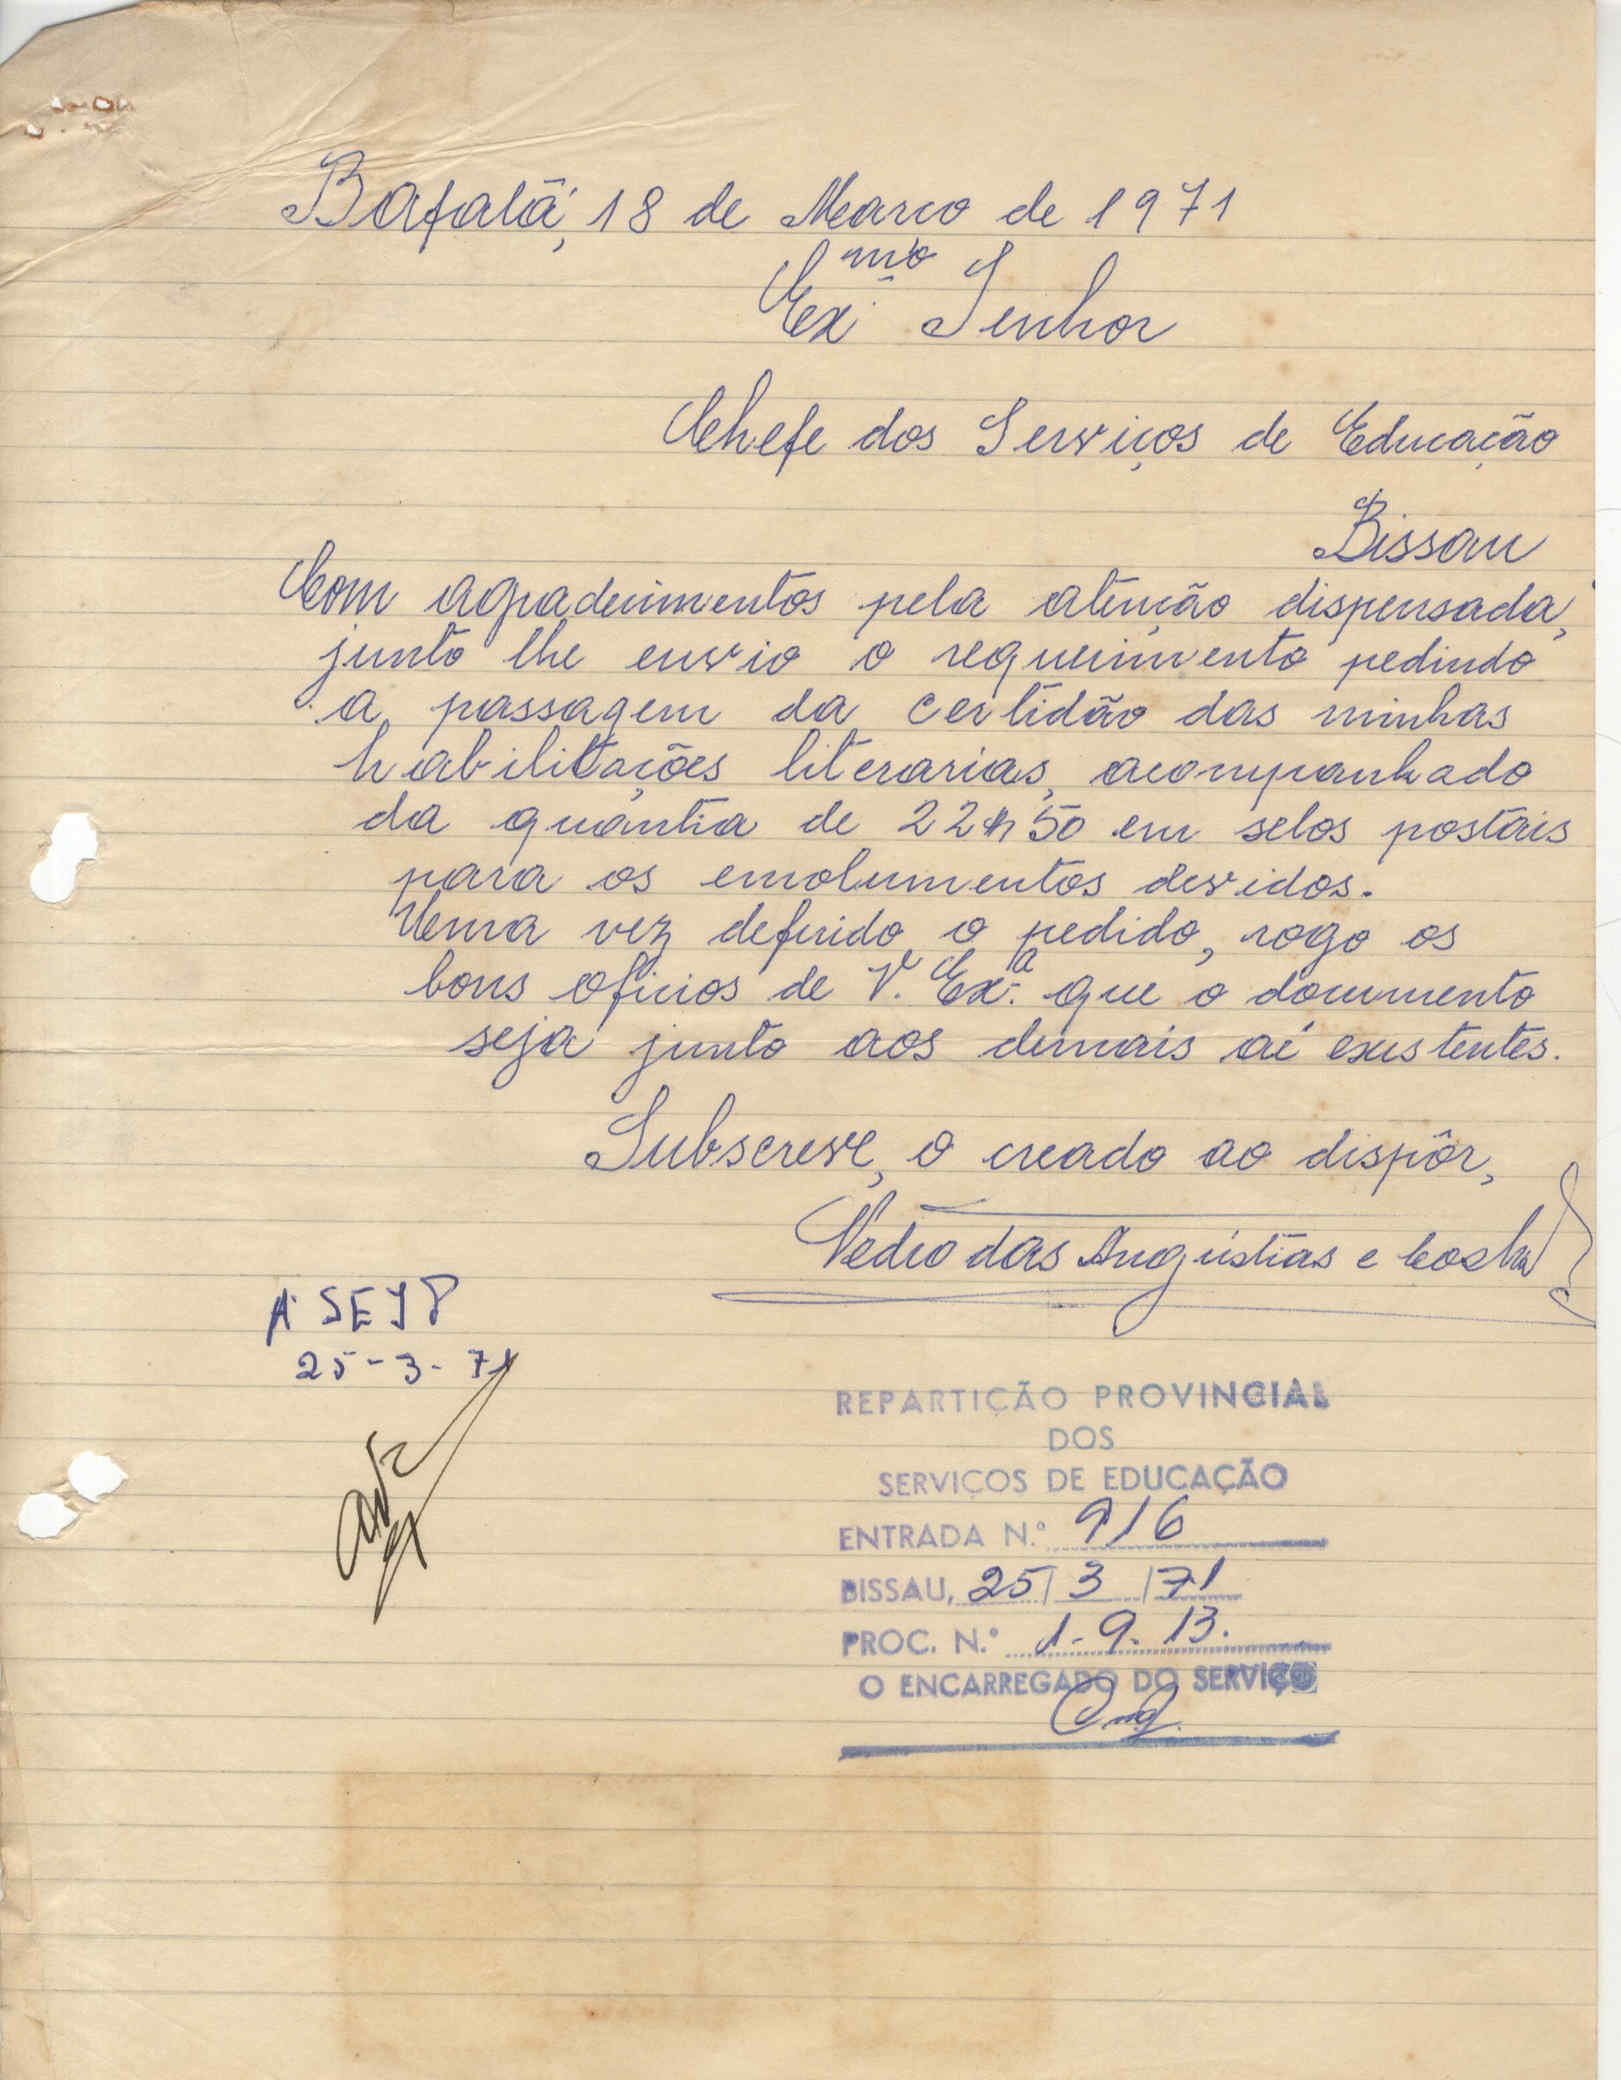 Bafatá, 18 de Março de 1971
Exmo Senhor
Chefe dos Serviços de Educação
Bissau
Com agradecimentos pela atenção dispensada,
junto lhe envio o requerimento pedindo
a passagem da certidão das minhas
habilitações literarias, acompanhado
da quantia de 22$50 em selos postais
para os emolumentos devidos.
Uma vez deferido o pedido, rogo os
bons oficios de V. Ex.a que o documento
seja junto aos demais aí existentes.
Subscreve, o creado ao dispôr,
Pedro das Angústias e Costa
À SEJP
25-3-71
REPARTIÇÃO PROVINCIAL
DOS
SERVIÇOS DE EDUCAÇÃO
ENTRADA N.º 916
BISSAU, 25/3/71
PROC. N.º 1-9.13.
O ENCARREGADO DO SERVIÇO